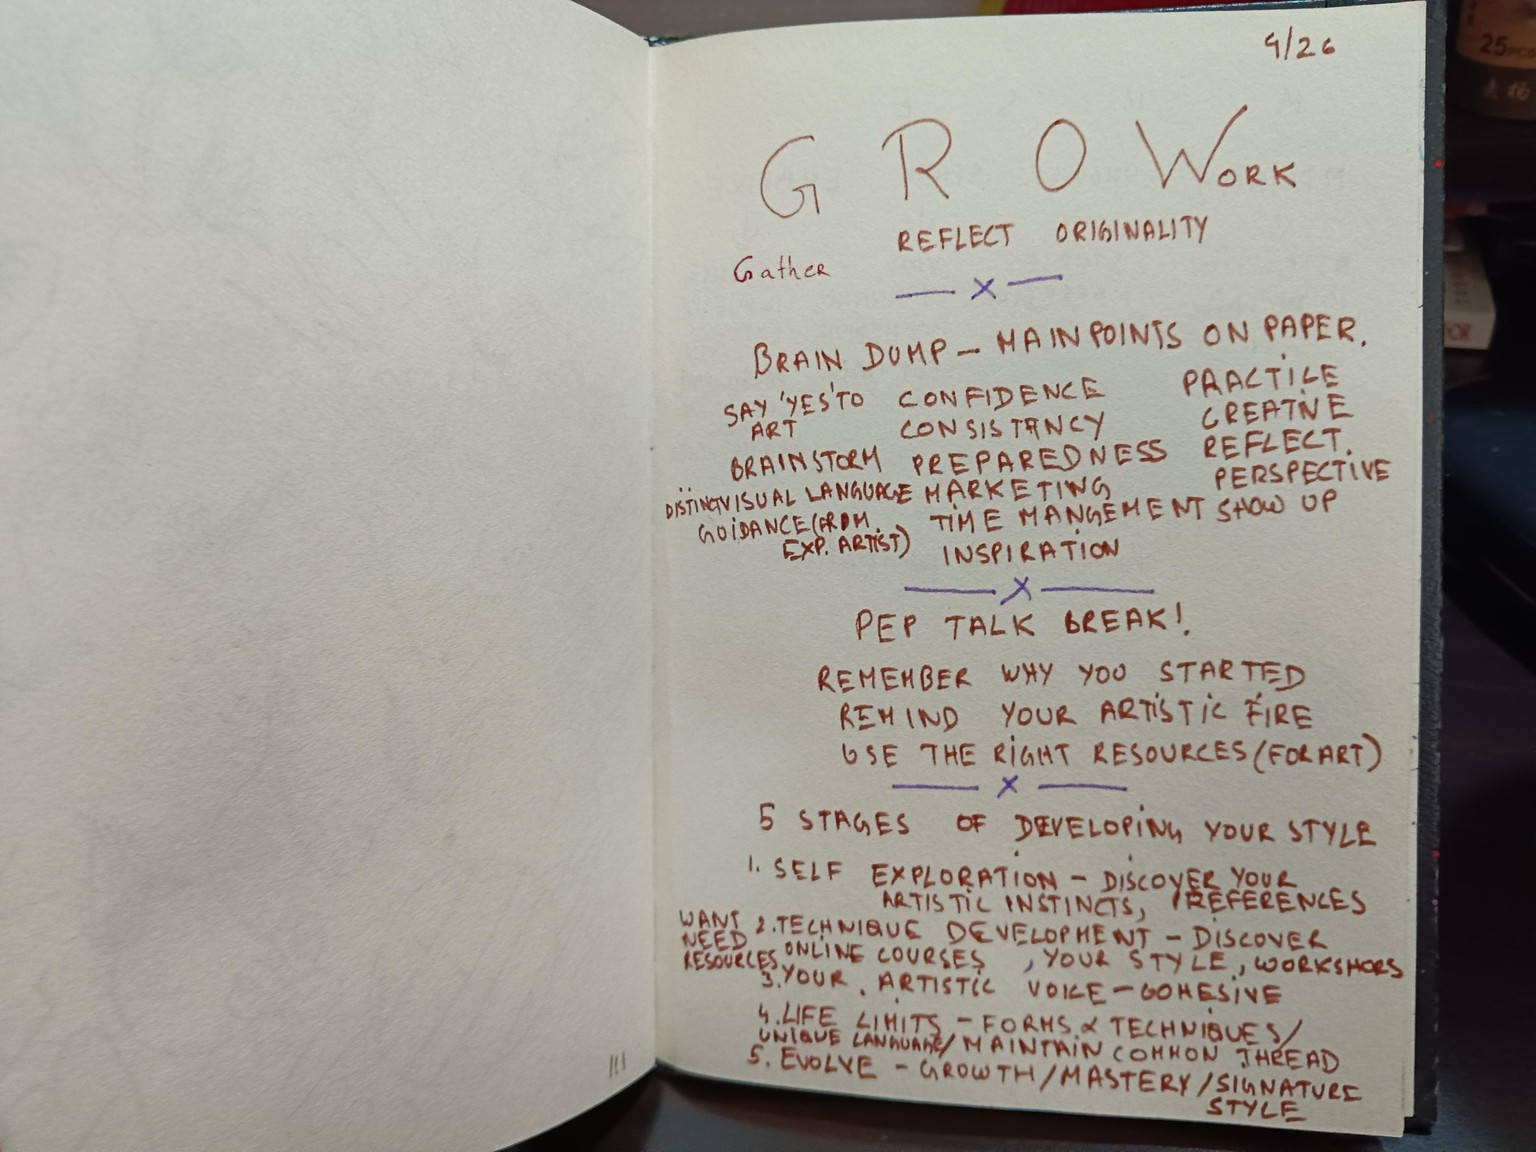 4/26
G R O Work
REFLECT ORIGINALITY
Gather
— x —
BRAIN DUMP – MAIN POINTS ON PAPER.
SAY 'YES' TO ART
BRAINSTORM
DISTINCT VISUAL LANGUAGE
GUIDANCE (FROM
EXP. ARTIST)
CONFIDENCE
CONSISTANCY
PREPAREDNESS
MARKETING
TIME MANGEMENT
INSPIRATION
PRACTICE
CREATIVE
REFLECT.
PERSPECTIVE
SHOW UP
— x —
PEP TALK BREAK!
REMEMBER WHY YOU STARTED
REMIND YOUR ARTISTIC FIRE
USE THE RIGHT RESOURCES (FOR ART)
— x —
5 STAGES OF DEVELOPING YOUR STYLE
1. SELF EXPLORATION – DISCOVER YOUR
ARTISTIC INSTINCTS, REFERENCES
WANT
NEED
RESOURCES
2. TECHNIQUE DEVELOPMENT – DISCOVER
ONLINE COURSES , YOUR STYLE, WORKSHOPS
3. YOUR ARTISTIC VOICE – COHESIVE
4. LIFE LIMITS – FORMS & TECHNIQUES/
UNIQUE LANGUAGE/ MAINTAIN COMMON THREAD
5. EVOLVE – GROWTH/MASTERY/SIGNATURE
STYLE